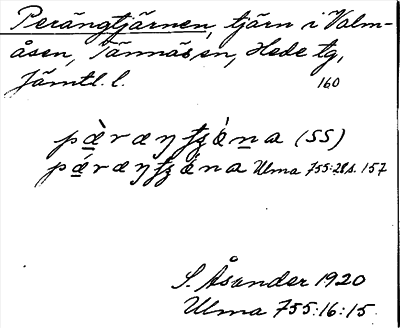 Perängtjärnen, tjärn i Valm-
åsen, Tännäs sn, Hede tg,
Jämtl. l. 160
(SS)
Ulma 755:28 s. 157
S. Åsander 1920
Ulma 755:16:15.